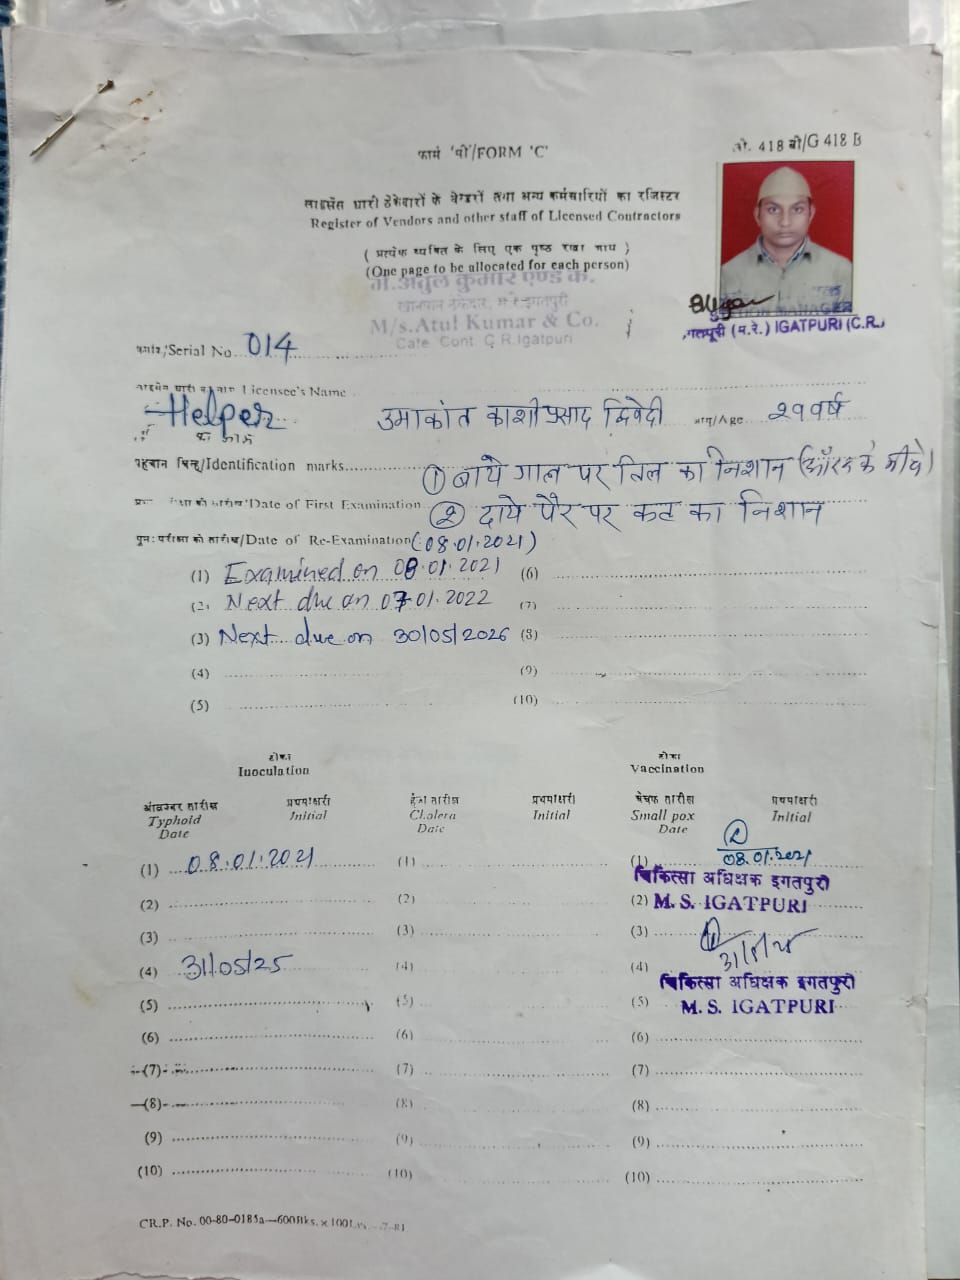 फार्म 'सी'/FORM 'C'
जी. 418 बी/G 418 B
लाइसेंस धारी ठेकेदारों के वेन्डरों तथा अन्य कर्मचारियों का रजिस्टर
Register of Vendors and other staff of Licensed Contractors
( प्रत्येक व्यक्ति के लिए एक पृष्ठ रखा जाय )
(One page to be allocated for each person)
मे. अतुल कुमार एण्ड कं.
M/s. Atul Kumar & Co.
Cate. Cont. C.R. Igatpuri
MANAGER
IGATPURI (C.R.)
/Serial No. 014
Licensee's Name
Helper उमाकांत काशीप्रसाद द्विवेदी /Age २१ वर्ष
पहचान चिन्ह/Identification marks ① बाये गाल पर तिल का निशान
Date of First Examination ② दाये पैर पर कट का निशान
पुनः परीक्षा की तारीख/Date of Re-Examination (08.01.2021)
(1) Examined on 08.01.2021 (6)
(2) Next due on 07.01.2022 (7)
(3) Next due on 30/05/2026 (8)
(4) (9)
(5) (10)
टीका टीका
Inoculation Vaccination
तारीख प्रथमाक्षरी हैजा तारीख प्रथमाक्षरी चेचक तारीख प्रथमाक्षरी
Typhoid Initial Cholera Initial Small pox Initial
Date Date Date
(1) 08.01.2021 (1) (1) 08.01.2021
चिकित्सा अधिक्षक इगतपुरी
(2) (2) (2) M. S. IGATPURI
(3) (3) (3)
(4) 31/05/25 (4) (4)
चिकित्सा अधिक्षक इगतपुरी
(5) (5) (5) M. S. IGATPURI
(6) (6) (6)
(7) (7) (7)
(8) (8) (8)
(9) (9) (9)
(10) (10) (10)
CR.P. No. 00-80-0185a—600Bks. x 100